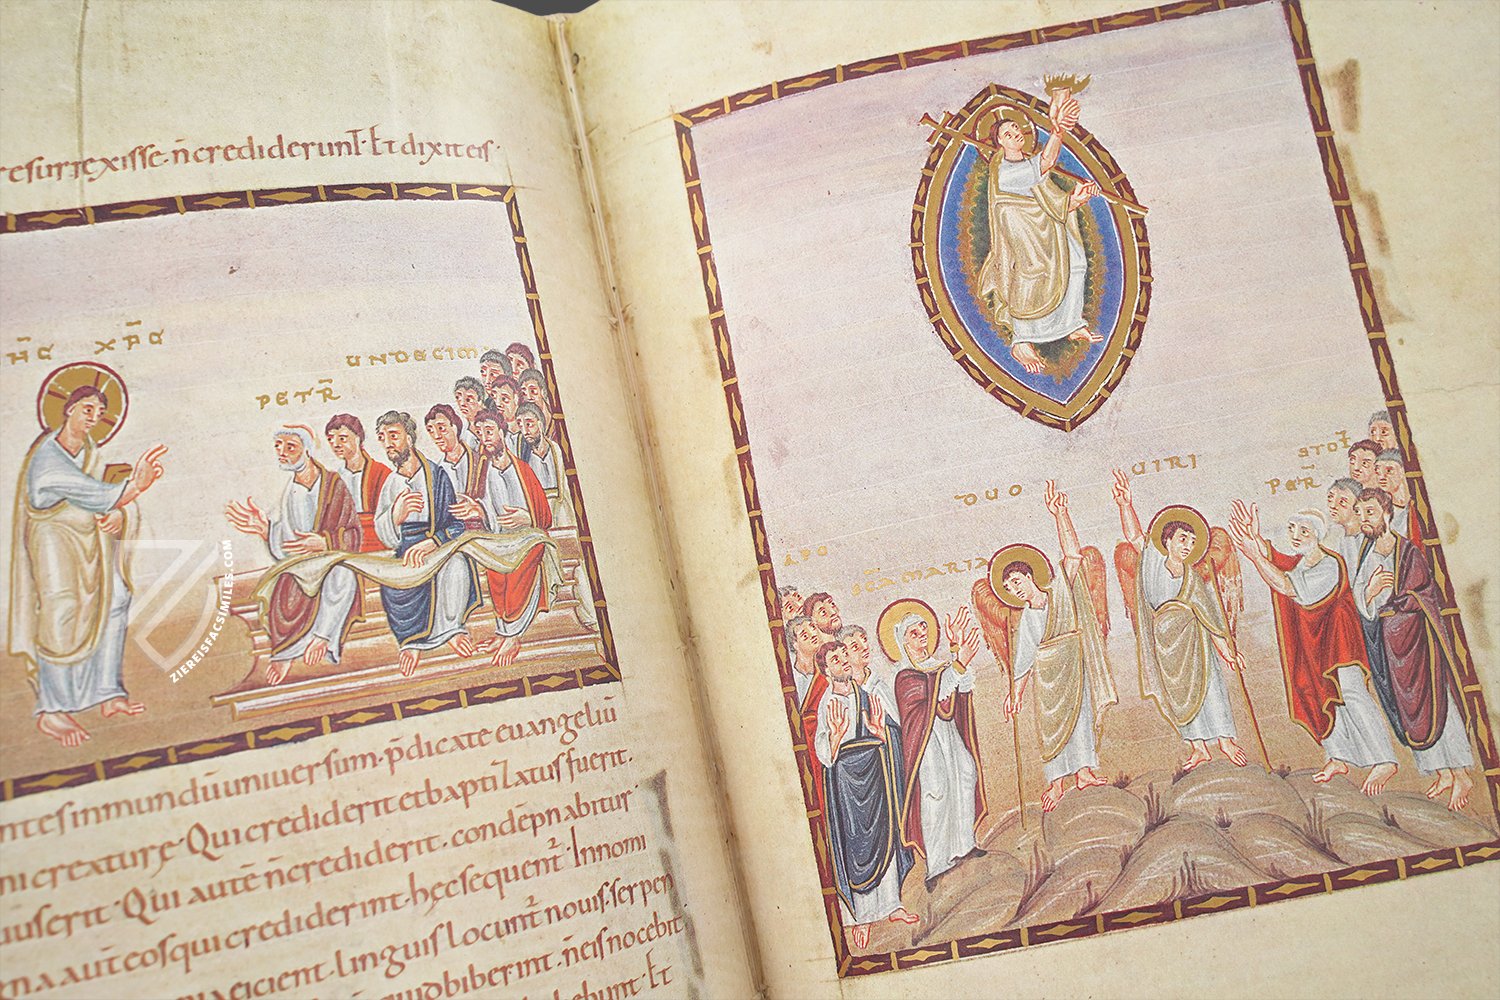 resurrexisse. n̄ crediderunt. Et dixit eis.
XP̄C
PETR̄
UNDECIM.
in mundū universum. p̄dicate evangeliū
creature. Qui crediderit et baptizatus fuerit.
Qui autē n̄ crediderit. condēpnabitur
aut̄ eos qui crediderint. hęc sequent̄. In nomi
eicient. Linguis locunt̄ novis. serpen
biberint. n̄ eis nocebit
Et
DUO
VIRI
PER̄
SC̄A MARIA
ZIEREISFACSIMILES.COM